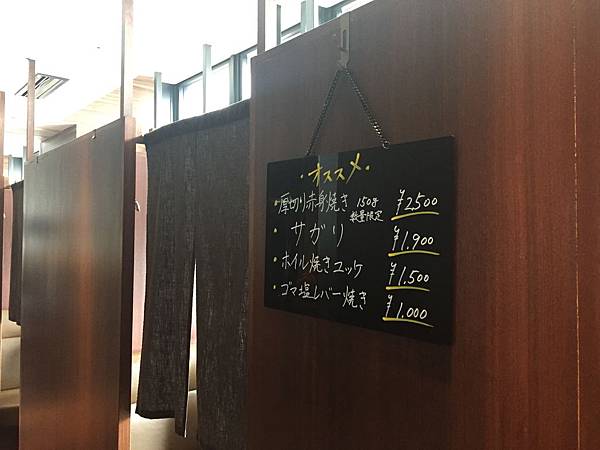 ・オススメ・
・厚切り赤身焼き 150g 数量限定 ¥2500
・サガリ ¥1.900
・ホイル焼きユッケ ¥1.500
・ゴマ塩レバー焼き ¥1.000